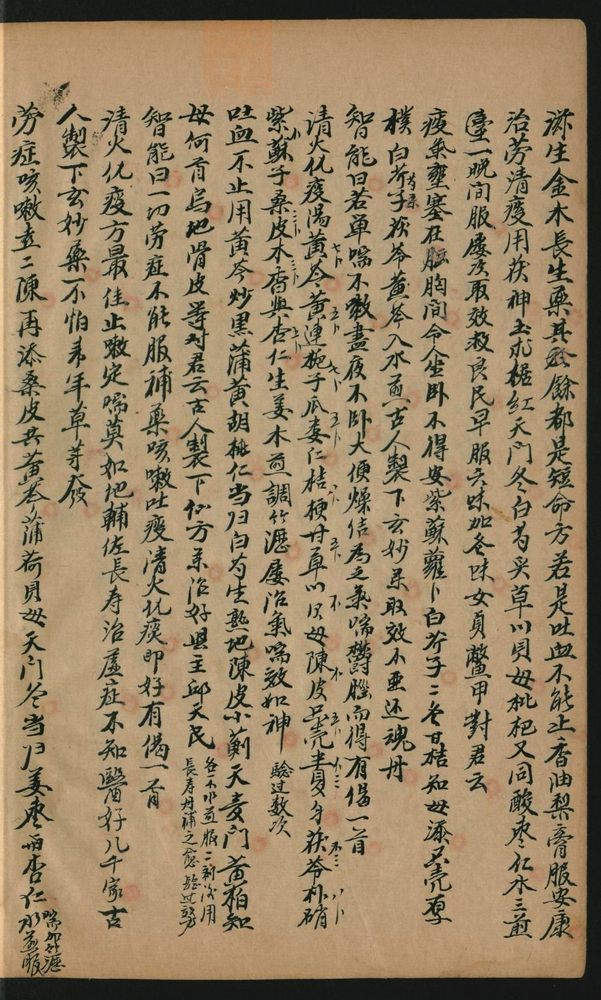 滋生金木長生藥其於餘都是短命方若是吐血不能止香油梨膏服安康
治劳清痰用茯神土朮橘红天門冬白芍炙草川貝母枇杷又同酸枣仁水三煎
壹一晚间服屡次取效救良民早服六味加冬味女貞鱉甲對君云
痰氣壅塞在胸间令人坐卧不得安紫蘇蘿卜白芥子二冬甘桔知母添只壳厚
樸白芥子茯苓黄芩入水煎古人製下玄妙藥取效不亜还魂丹
智能曰若单喘不嗽晝夜不卧大便燥结為之氣喘欝腦而得有偈一首
清火化痰湯黄芩黄連梔子瓜蔞仁桔梗甘草川贝母陳皮只壳半夏与茯苓朴硝
紫蘇子桑皮木香與杏仁生姜木煎調竹瀝屡治氣喘效如神 驗过数次
吐血不止用黄芩炒黑蒲黄胡桃仁当归白芍生熟地陳皮小薊天麥門黄柏知
母何首烏地骨皮等对君云古人製下仙方藥治好興主邱天民
長寿丹補之愈驗过
智能曰一切劳症不能服補藥咳嗽吐痰清火化痰即好有偈一首
清火化痰方最佳止嗽定喘莫如他輔佐長寿治虚症不知醫好几千家古
人製下玄妙藥不怕来年草芽發
劳症咳嗽查二陳再添桑皮共黄芩薄荷貝母天門冬当归姜枣而杏仁水煎服